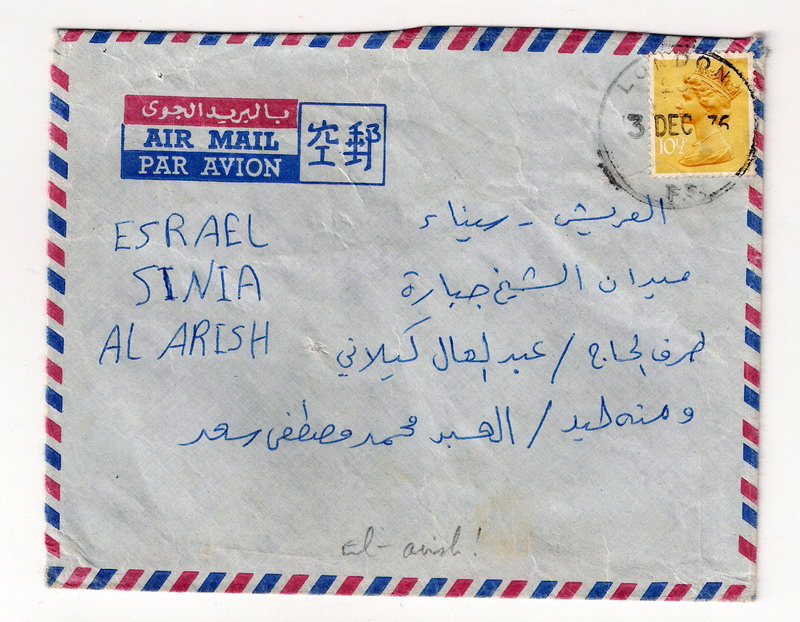 بالبريد الجوى
AIR MAIL
PAR AVION
空郵
LONDON
3 DEC 76
10½P
العريش - سيناء
ميدان الشيخ جبارة
طرف الحاج / عبد العال كيلاني
ومنه ليد / السيد محمد مصطفى سعد
ESRAEL
SINIA
AL ARISH
El-arish!